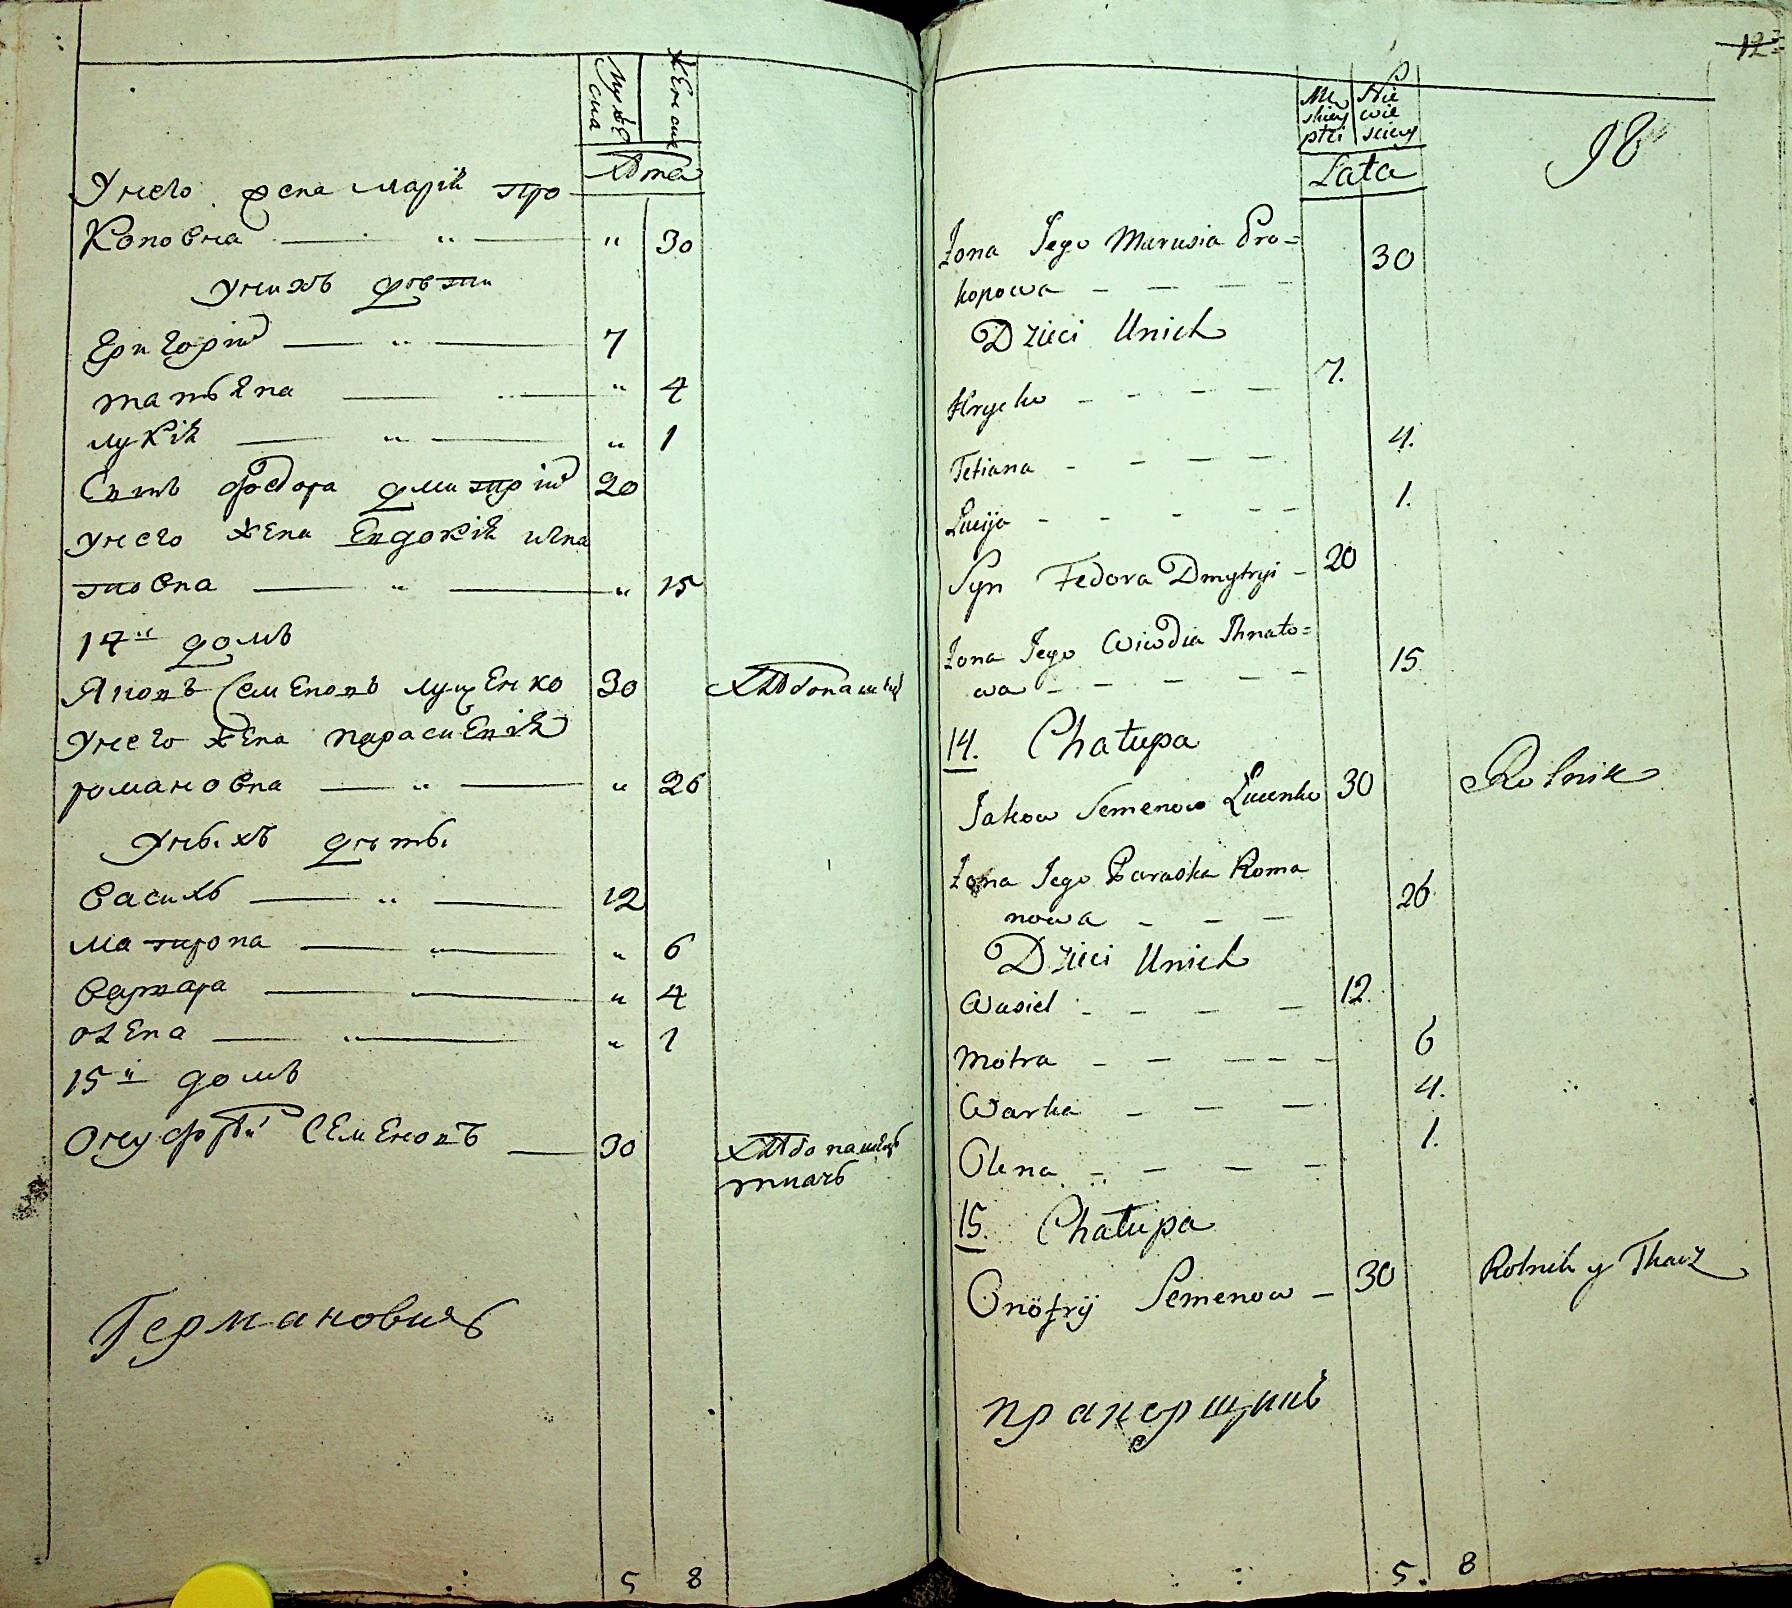 Мужеска
Женска
Лѣта
У него жена Марія Про
коповна — " — " 30
У нихъ дѣти
Григорій — " — 7
Татьяна — " 4
Лукія — " — " 1
Сынъ Федора Дмитрій 20
У него жена Евдокія Игна
товна — " — " 15
14й домъ
Яковъ Семеновъ Луценко 30 Хлѣбопашецъ
У него жена Параскевія
Романовна — " — " 26
У ныхъ дѣты
Василь — " — 12
Матрона — " — " 6
Варвара — " 4
Олена — " — " 1
15й домъ
Онуфрій Семеновъ — 30 Хлѣбопашецъ
ткачъ
Германовичъ
5 8
12
98
Mę skiey płci
Nie wie sciey
Lata
Zona Jego Marusia Pro=
kopowa - - - - 30
Dzieci Unich
Hrycko - - - - 7.
Tetiana - - - - 4.
Lucija - - - - - 1.
Syn Fedora Dmytryi - 20
Zona Jego Wiwdia Ihnato=
wa - - - - - 15
14. Chałupa
Jakow Semenow Lucenko 30 Rolnik
Zona Jego Paraska Roma
nowa - - - 26
Dzieci Unich
Wasiel - - - - 12.
Motra - - - - - 6
Warka - - - 4.
Olena - - - - 1.
15. Chałupa
Onofrÿ Semenow - 30 Rolnik y Tkacz
Прапорщикъ
5. 8